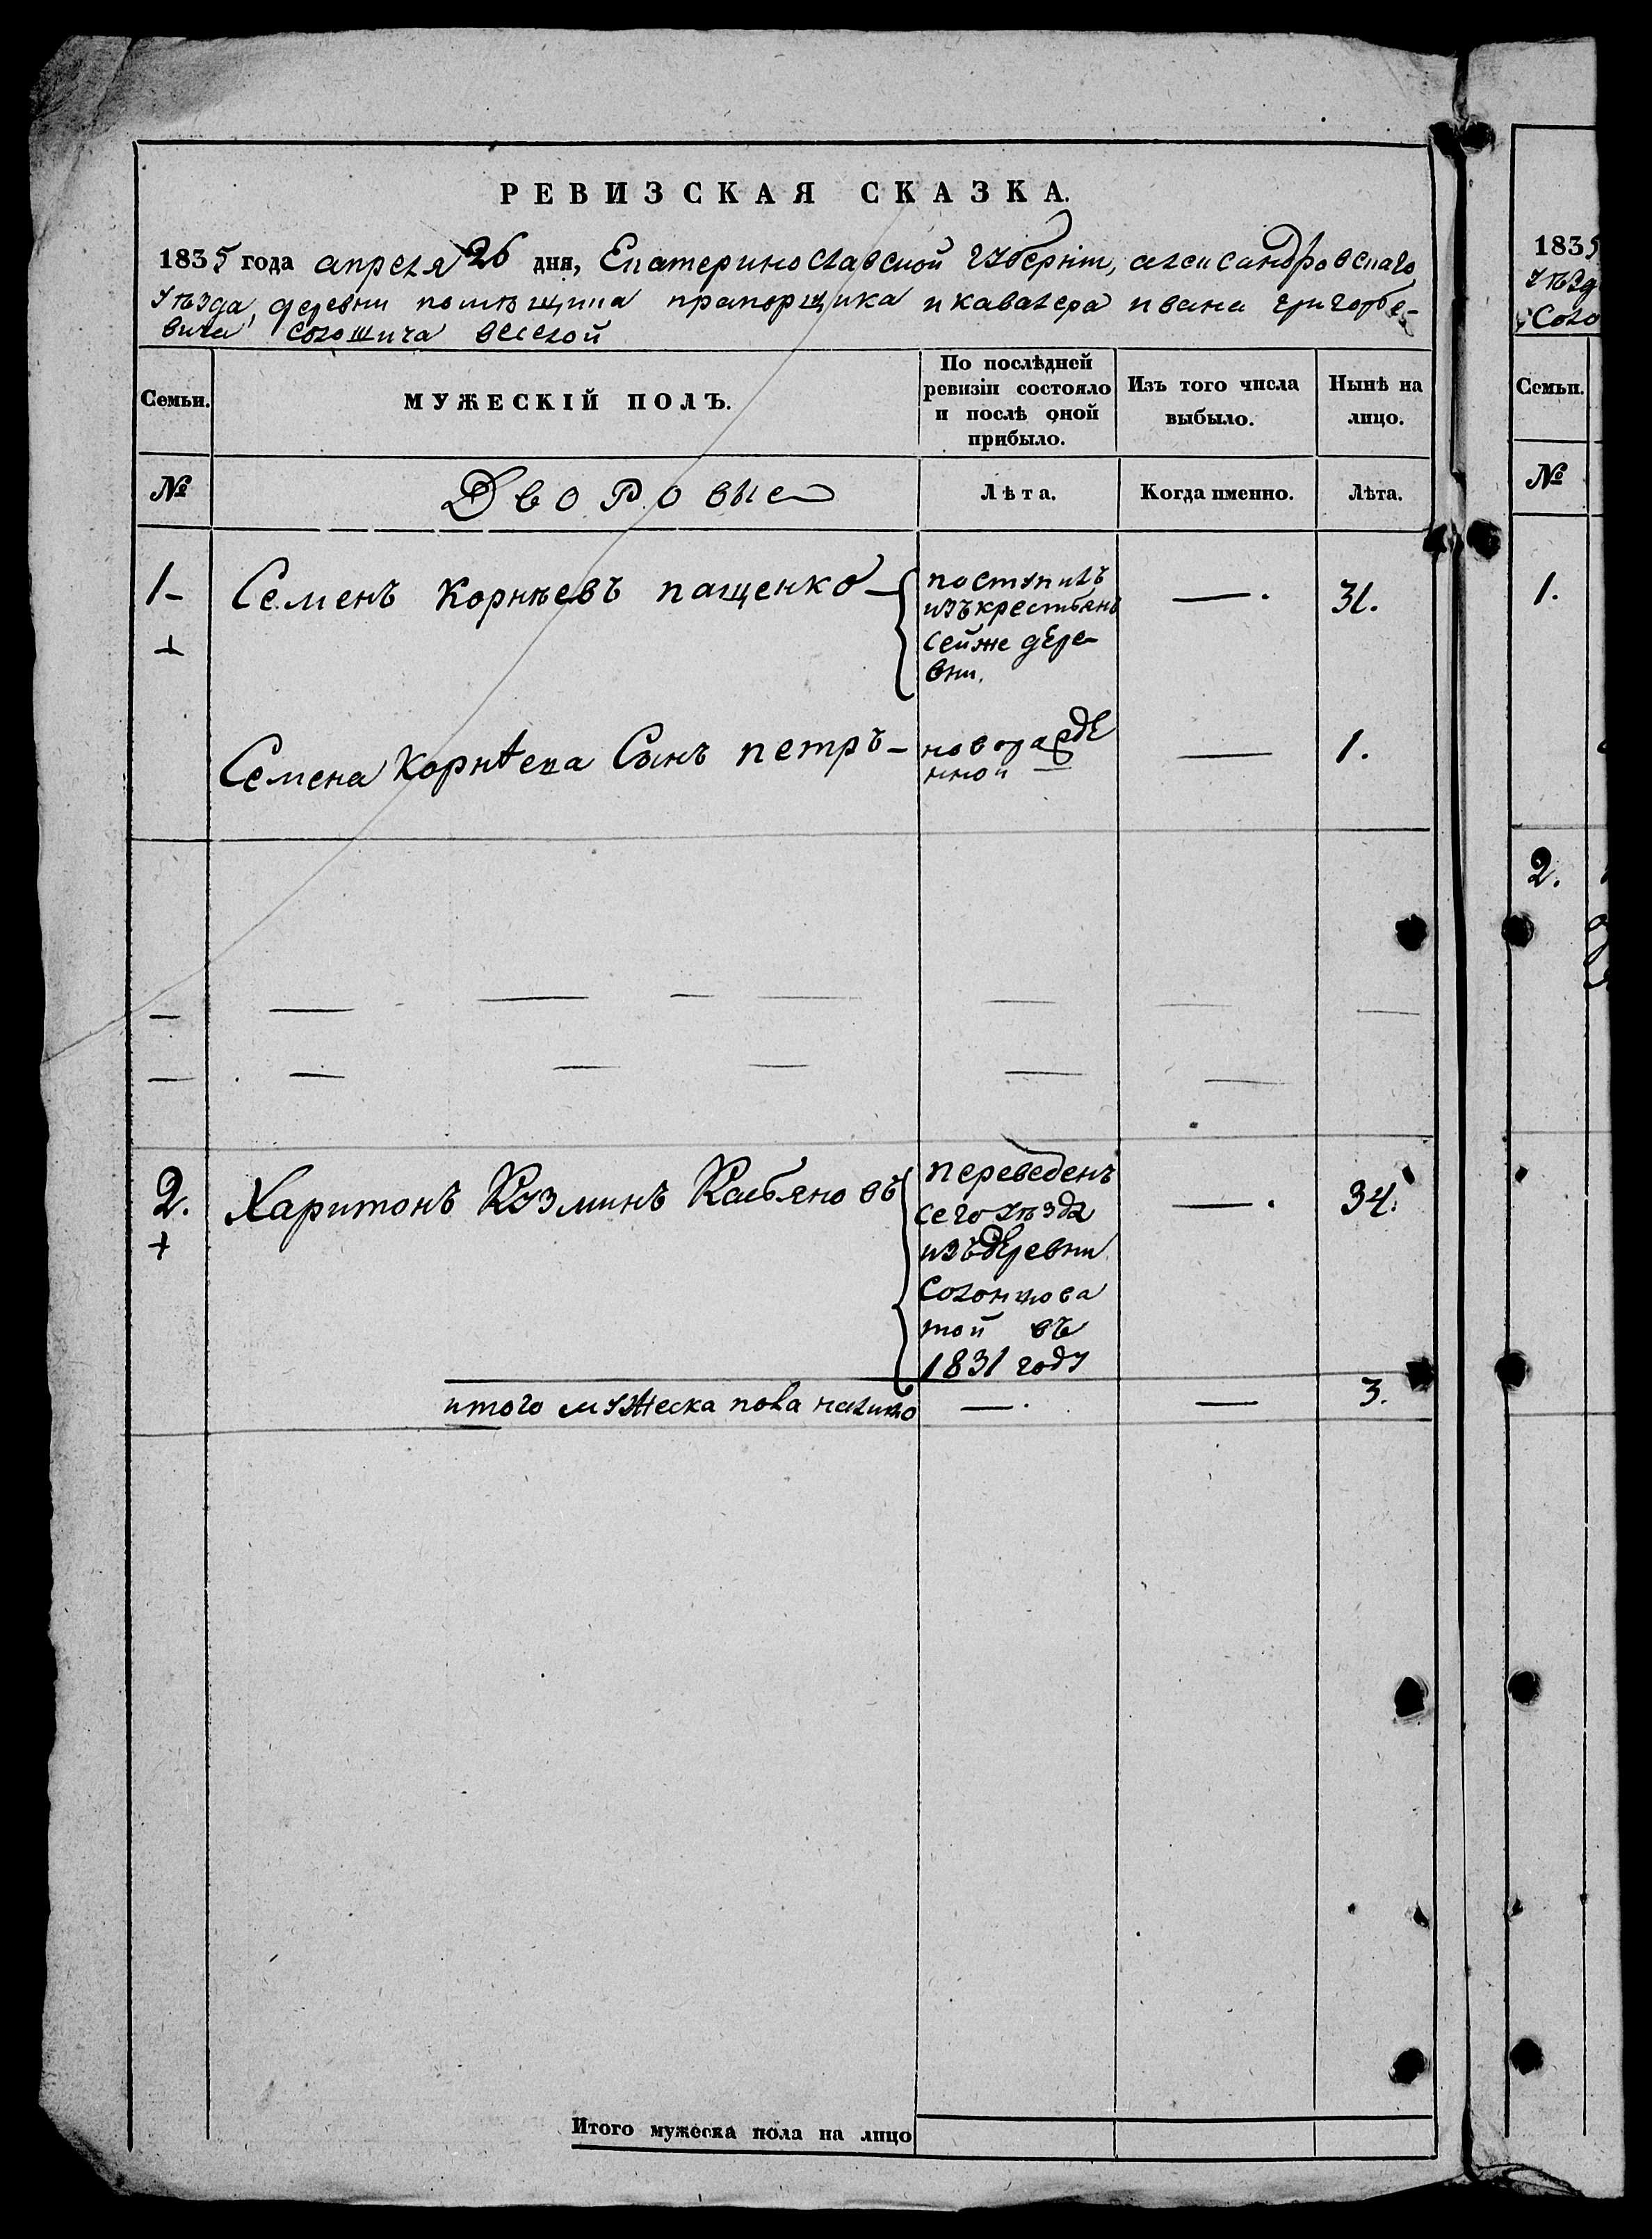 РЕВИЗСКАЯ СКАЗКА.
1835 года апреля 26 дня, Екатеринославской губерніи, александровскаго
уѣзда, деревни помѣщика прапорщика и кавалера ивана григорье-
вича веселой
Семьи.
МУЖЕСКІЙ ПОЛЪ.
По послѣдней
ревизіи состояло
и послѣ оной
прибыло.
Изъ того числа
выбыло.
Нынѣ на
лицо.
№
Дворовые
Лѣта.
Когда именно.
Лѣта.
1-
Семенъ Корнѣевъ пащенко -
поступилъ
изъ крестьянъ
сей же дере-
вни.
— .
31.
Семена Корнѣева Сынъ петръ -
новорожде
нной
—
1.
2.
Харитонъ Козминъ Касьяновъ
переведенъ
сего уѣзда
изъ деревни
Солонцова
той въ
1831 году
— .
34.
итого мужеска пола налицо
— .
—
3.
Итого мужеска пола на лицо
1835
уѣзд
Соло
Семьи.
№
1.
2.